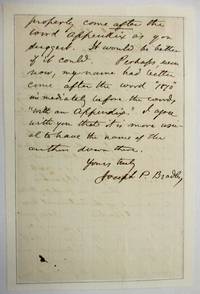 properly come after the
word Appendix as you
suggest. It would be better
if it could. Perhaps, even
now, my name had better
come after the word "1870"
immediately before the words,
"with an Appendix." I agree
with you that it is more usu-
al to have the name of the
author down there.
Yours truly
Joseph P. Bradley